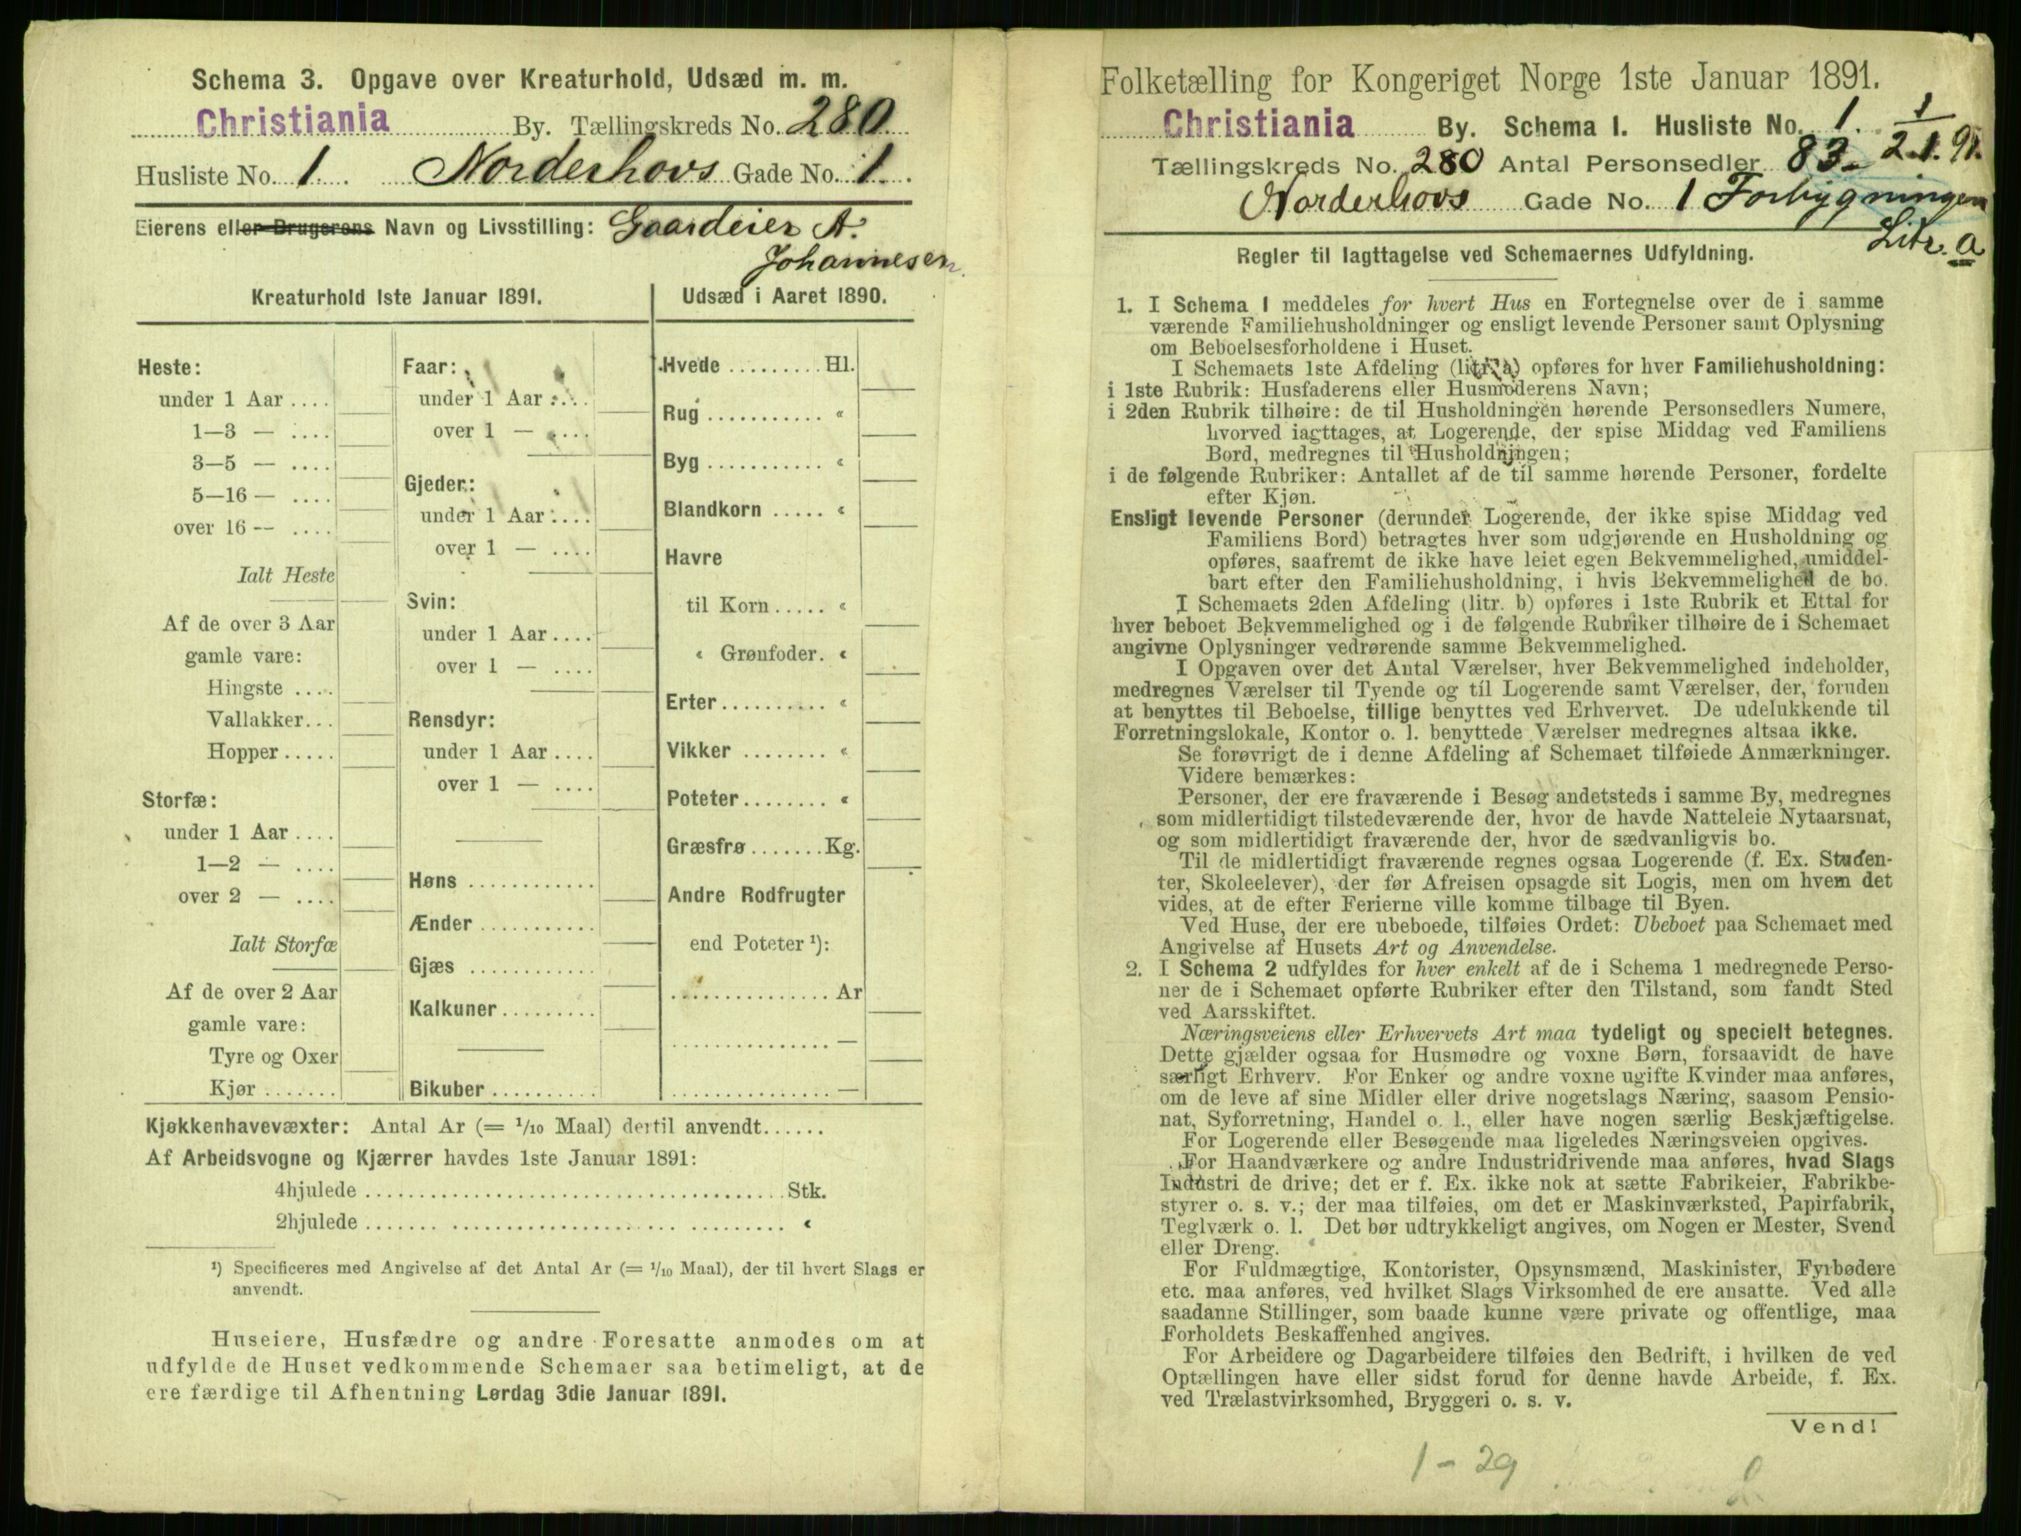 Schema 3. Opgave over Kreaturhold, Udsæd m. m.
Christiania By. Tællingskreds No. 280
Husliste No. 1 Norderhovs Gade No. 1.
Eierens eller Brugerens Navn og Livsstilling: Gaardeier A.
Johannesen.
Kreaturhold 1ste Januar 1891.
Heste:
under 1 Aar ....
1—3 — ....
3—5 — ....
5—16 — ....
over 16 — ....
Ialt Heste
Af de over 3 Aar
gamle vare:
Hingste ....
Vallakker...
Hopper.....
Storfæ:
under 1 Aar ....
1—2 — ....
over 2 — ....
Ialt Storfæ
Af de over 2 Aar
gamle vare:
Tyre og Oxer
Kjør .......
Faar:
under 1 Aar ....
over 1 — ....
Gjeder:
under 1 Aar....
over 1 — ....
Svin:
under 1 Aar....
over 1 — ....
Rensdyr:
under 1 Aar ....
over 1 — ....
Høns ............
Ænder ...........
Gjæs ............
Kalkuner.........
Bikuber..........
Udsæd i Aaret 1890.
Hvede ......... Hl.
Rug ........... «
Byg ........... «
Blandkorn ..... «
Havre
til Korn ..... «
« Grønfoder. «
Erter.......... «
Vikker ........ «
Poteter........ «
Græsfrø.......Kg.
Andre Rodfrugter
end Poteter ¹):
............... Ar
............... —
............... —
Kjøkkenhavevæxter: Antal Ar (= 1/10 Maal) dertil anvendt......
Af Arbeidsvogne og Kjærrer havdes 1ste Januar 1891:
4hjulede ........................................ Stk.
2hjulede ........................................ «
¹) Specificeres med Angivelse af det Antal Ar (= 1/10 Maal), der til hvert Slags er
anvendt.
Huseiere, Husfædre og andre Foresatte anmodes om at
udfylde de Huset vedkommende Schemaer saa betimeligt, at de
ere færdige til Afhentning Lørdag 3die Januar 1891.
Folketælling for Kongeriget Norge 1ste Januar 1891.
Christiania By. Schema 1. Husliste No. 1. 1/
Tællingskreds No. 280 Antal Personsedler 83. 2.1.91.
Norderhovs Gade No. 1 Forbygningen
Litr. a
Regler til Iagttagelse ved Schemaernes Udfyldning.
1. I Schema 1 meddeles for hvert Hus en Fortegnelse over de i samme
værende Familiehusholdninger og ensligt levende Personer samt Oplysning
om Beboelsesforholdene i Huset.
I Schemaets 1ste Afdeling (litr. a) opføres for hver Familiehusholdning:
i 1ste Rubrik: Husfaderens eller Husmoderens Navn;
i 2den Rubrik tilhøire: de til Husholdningen hørende Personsedlers Numere,
hvorved iagttages, at Logerende, der spise Middag ved Familiens
Bord, medregnes til Husholdningen;
i de følgende Rubriker: Antallet af de til samme hørende Personer, fordelte
efter Kjøn.
Ensligt levende Personer (derunder Logerende, der ikke spise Middag ved
Familiens Bord) betragtes hver som udgjørende en Husholdning og
opføres, saafremt de ikke have leiet egen Bekvemmelighed, umiddel-
bart efter den Familiehusholdning, i hvis Bekvemmelighed de bo.
I Schemaets 2den Afdeling (litr. b) opføres i 1ste Rubrik et Ettal for
hver beboet Bekvemmelighed og i de følgende Rubriker tilhøire de i Schemaet
angivne Oplysninger vedrørende samme Bekvemmelighed.
I Opgaven over det Antal Værelser, hver Bekvemmelighed indeholder,
medregnes Værelser til Tyende og til Logerende samt Værelser, der, foruden
at benyttes til Beboelse, tillige benyttes ved Erhvervet. De udelukkende til
Forretningslokale, Kontor o. l. benyttede Værelser medregnes altsaa ikke.
Se forøvrigt de i denne Afdeling af Schemaet tilføiede Anmærkninger.
Videre bemærkes:
Personer, der ere fraværende i Besøg andetsteds i samme By, medregnes
som midlertidigt tilstedeværende der, hvor de havde Natteleie Nytaarsnat,
og som midlertidigt fraværende der, hvor de sædvanligvis bo.
Til de midlertidigt fraværende regnes ogsaa Logerende (f. Ex. Studen-
ter, Skoleelever), der før Afreisen opsagde sit Logis, men om hvem det
vides, at de efter Ferierne ville komme tilbage til Byen.
Ved Huse, der ere ubeboede, tilføies Ordet: Ubeboet paa Schemaet med
Angivelse af Husets Art og Anvendelse.
2. I Schema 2 udfyldes for hver enkelt af de i Schema 1 medregnede Perso-
ner de i Schemaet opførte Rubriker efter den Tilstand, som fandt Sted
ved Aarsskiftet.
Næringsveiens eller Erhvervets Art maa tydeligt og specielt betegnes.
Dette gjælder ogsaa for Husmødre og voxne Børn, forsaavidt de have
særligt Erhverv. For Enker og andre voxne ugifte Kvinder maa anføres,
om de leve af sine Midler eller drive nogetslags Næring, saasom Pensio-
nat, Syforretning, Handel o. l., eller have nogen særlig Beskjæftigelse.
For Logerende eller Besøgende maa ligeledes Næringsveien opgives.
For Haandværkere og andre Industridrivende maa anføres, hvad Slags
Industri de drive; det er f. Ex. ikke nok at sætte Fabrikeier, Fabrikbe-
styrer o. s. v.; der maa tilføies, om det er Maskinværksted, Papirfabrik,
Teglværk o. l. Det bør udtrykkeligt angives, om Nogen er Mester, Svend
eller Dreng.
For Fuldmægtige, Kontorister, Opsynsmænd, Maskinister, Fyrbødere
etc. maa anføres, ved hvilket Slags Virksomhed de ere ansatte. Ved alle
saadanne Stillinger, som baade kunne være private og offentlige, maa
Forholdets Beskaffenhed angives.
For Arbeidere og Dagarbeidere tilføies den Bedrift, i hvilken de ved
Optællingen have eller sidst forud for denne havde Arbeide, f. Ex.
ved Trælastvirksomhed, Bryggeri o. s. v.
Vend!
1 - 29